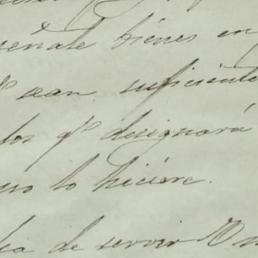 señale bienes en
q.e sean suficiente
los q.e designará
no lo hiciere.
de servir